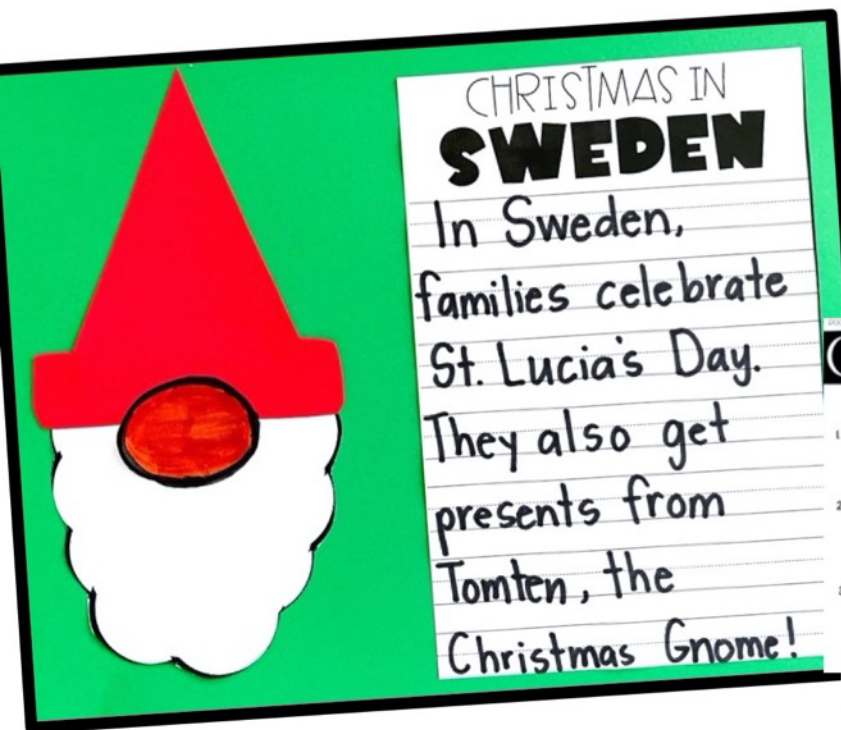 CHRISTMAS IN
SWEDEN
In Sweden,
families celebrate
St. Lucia's Day.
They also get
presents from
Tomten, the
Christmas Gnome!